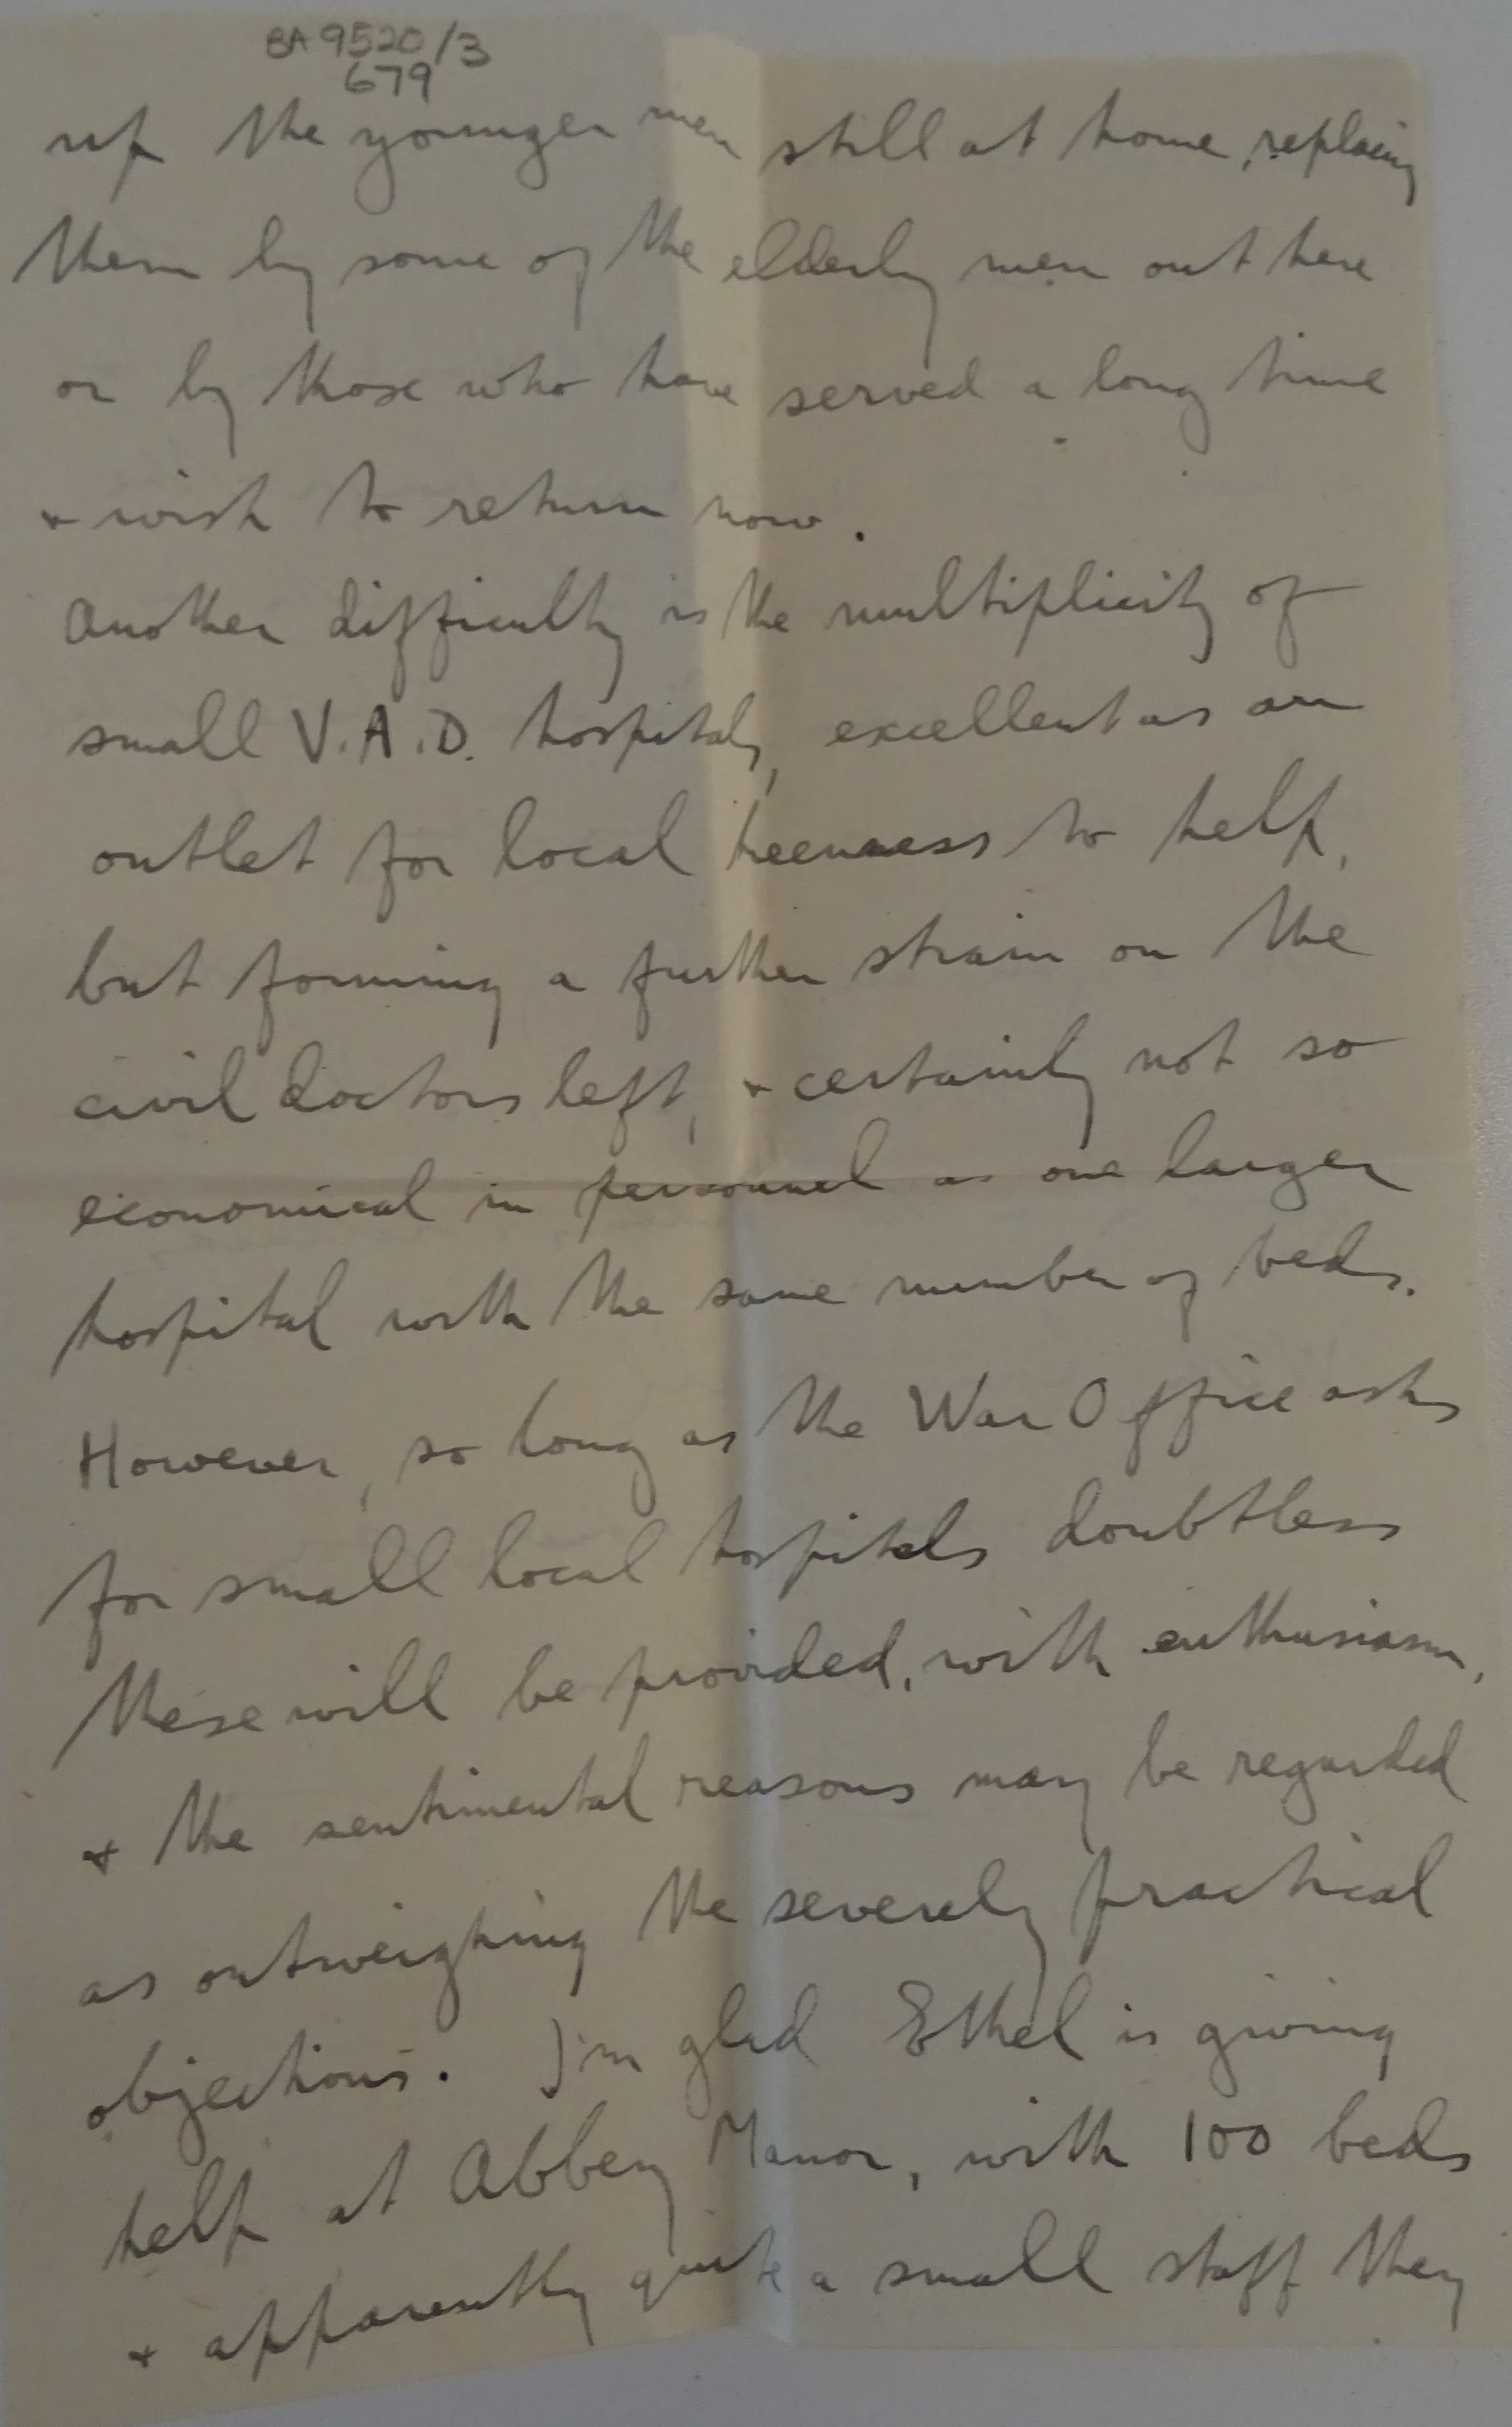 BA 9520/3
679
up the younger men still at home, replacing
them by some of the elderly men out here
or by those who have served a long time
& wish to return now.
Another difficulty is the multiplicity of
small V.A.D. hospitals, excellent as an
outlet for local keenness to help,
but forming a further strain on the
civil doctors left, & certainly not so
economical in personnel as one larger
hospital with the same number of beds.
However, so long as the War Office asks
for small local hospitals doubtless
these will be provided, with enthusiasm,
& the sentimental reasons may be regarded
as outweighing the severely practical
objections. I'm glad Ethel is giving
help at Abbey Manor, with 100 beds
& apparently quite a small staff they